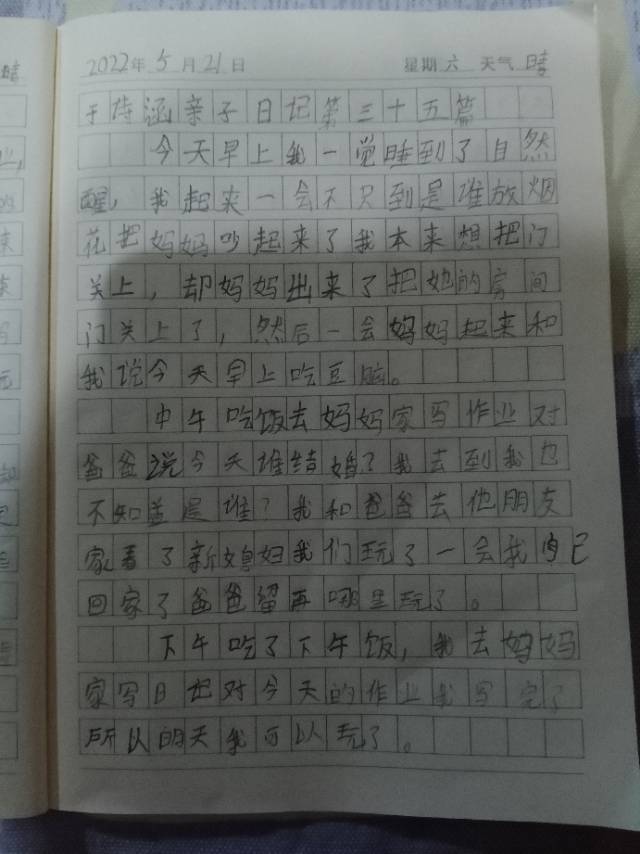 2022年5月21日 星期六 天气晴
于诗涵亲子日记第三十五篇
今天早上我一觉睡到了自然
醒，我起来一会不只到是谁放烟
花把妈妈吵起来了我本来想把门
关上，却妈妈出来了把她的房间
门关上了，然后一会妈妈起来和
我说今天早上吃豆脑。
中午吃饭去妈妈家写作业对
爸爸说今天谁结婚？我去到我也
不知盖是谁？我和爸爸去他朋友
家看了新媳妇我们玩了一会我自己
回家了爸爸留再哪里玩了。
下午吃了下午饭，我去妈妈
家写日记对今天的作业我写完了
所以明天我可以玩了。